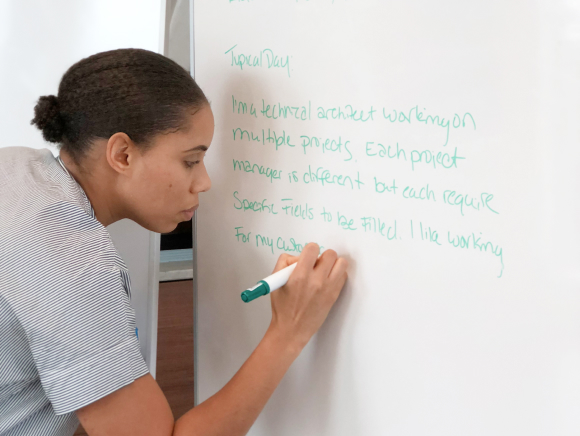 Typical Day
I'm a technical architect working on
multiple projects. Each project
manager is different but each require
Specific Fields to be Filled. I like working
For my